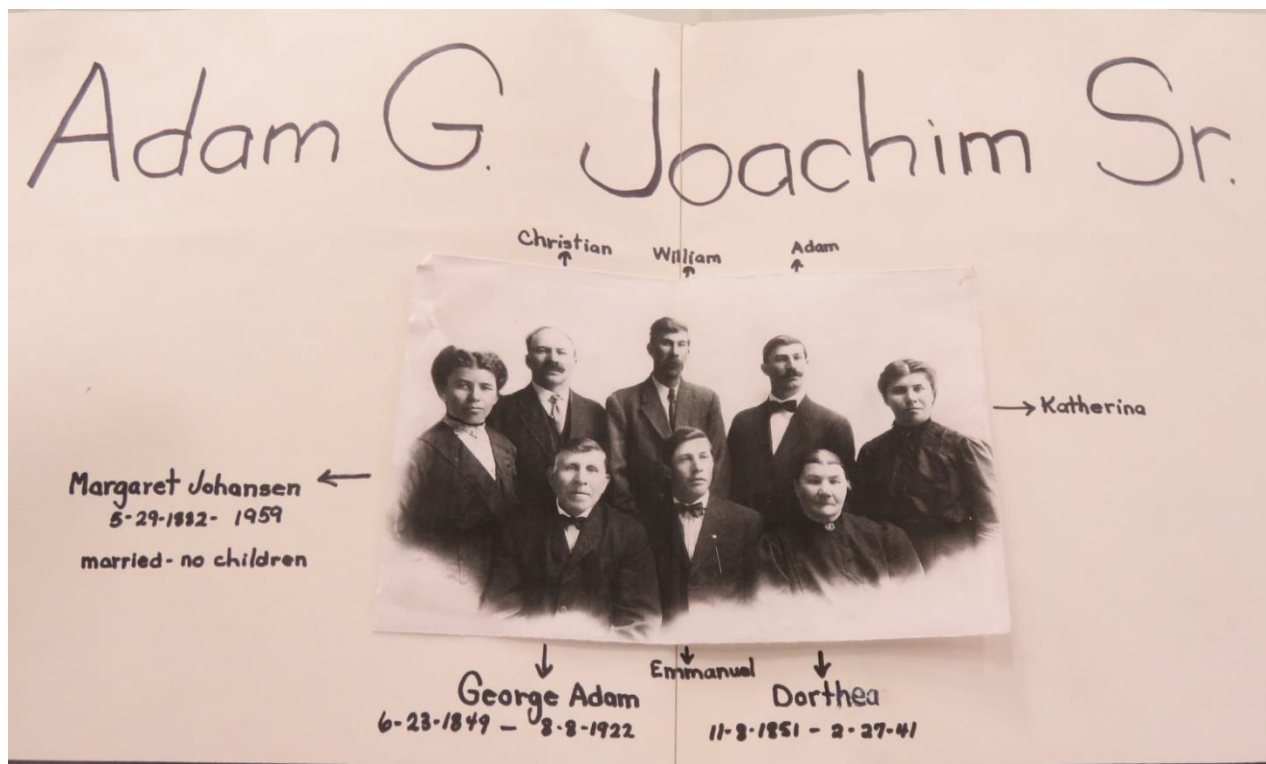 Adam G. Joachim Sr.
Christian
William
Adam
Katherina
Margaret Johansen
5-29-1882- 1959
married- no children
Emmanuel
George Adam
6-23-1849 - 8-8-1922
Dorthea
11-8-1851 - 2-27-41